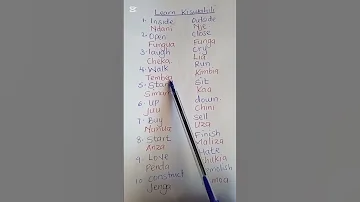 Learn Kiswahili
1. Inside Outside
Ndani Nje
2. Open Close
Fungua Funga
3. laugh Cry
Cheka. Lia
4. Walk Run
Tembea Kimbia
5. Sit
Kaa
6. UP down.
Juu Chini
7. Buy Sell
Nunua Uza
8. Start Finish
Anza Maliza
9. Love Hate
Penda
10. Construct
Jenga